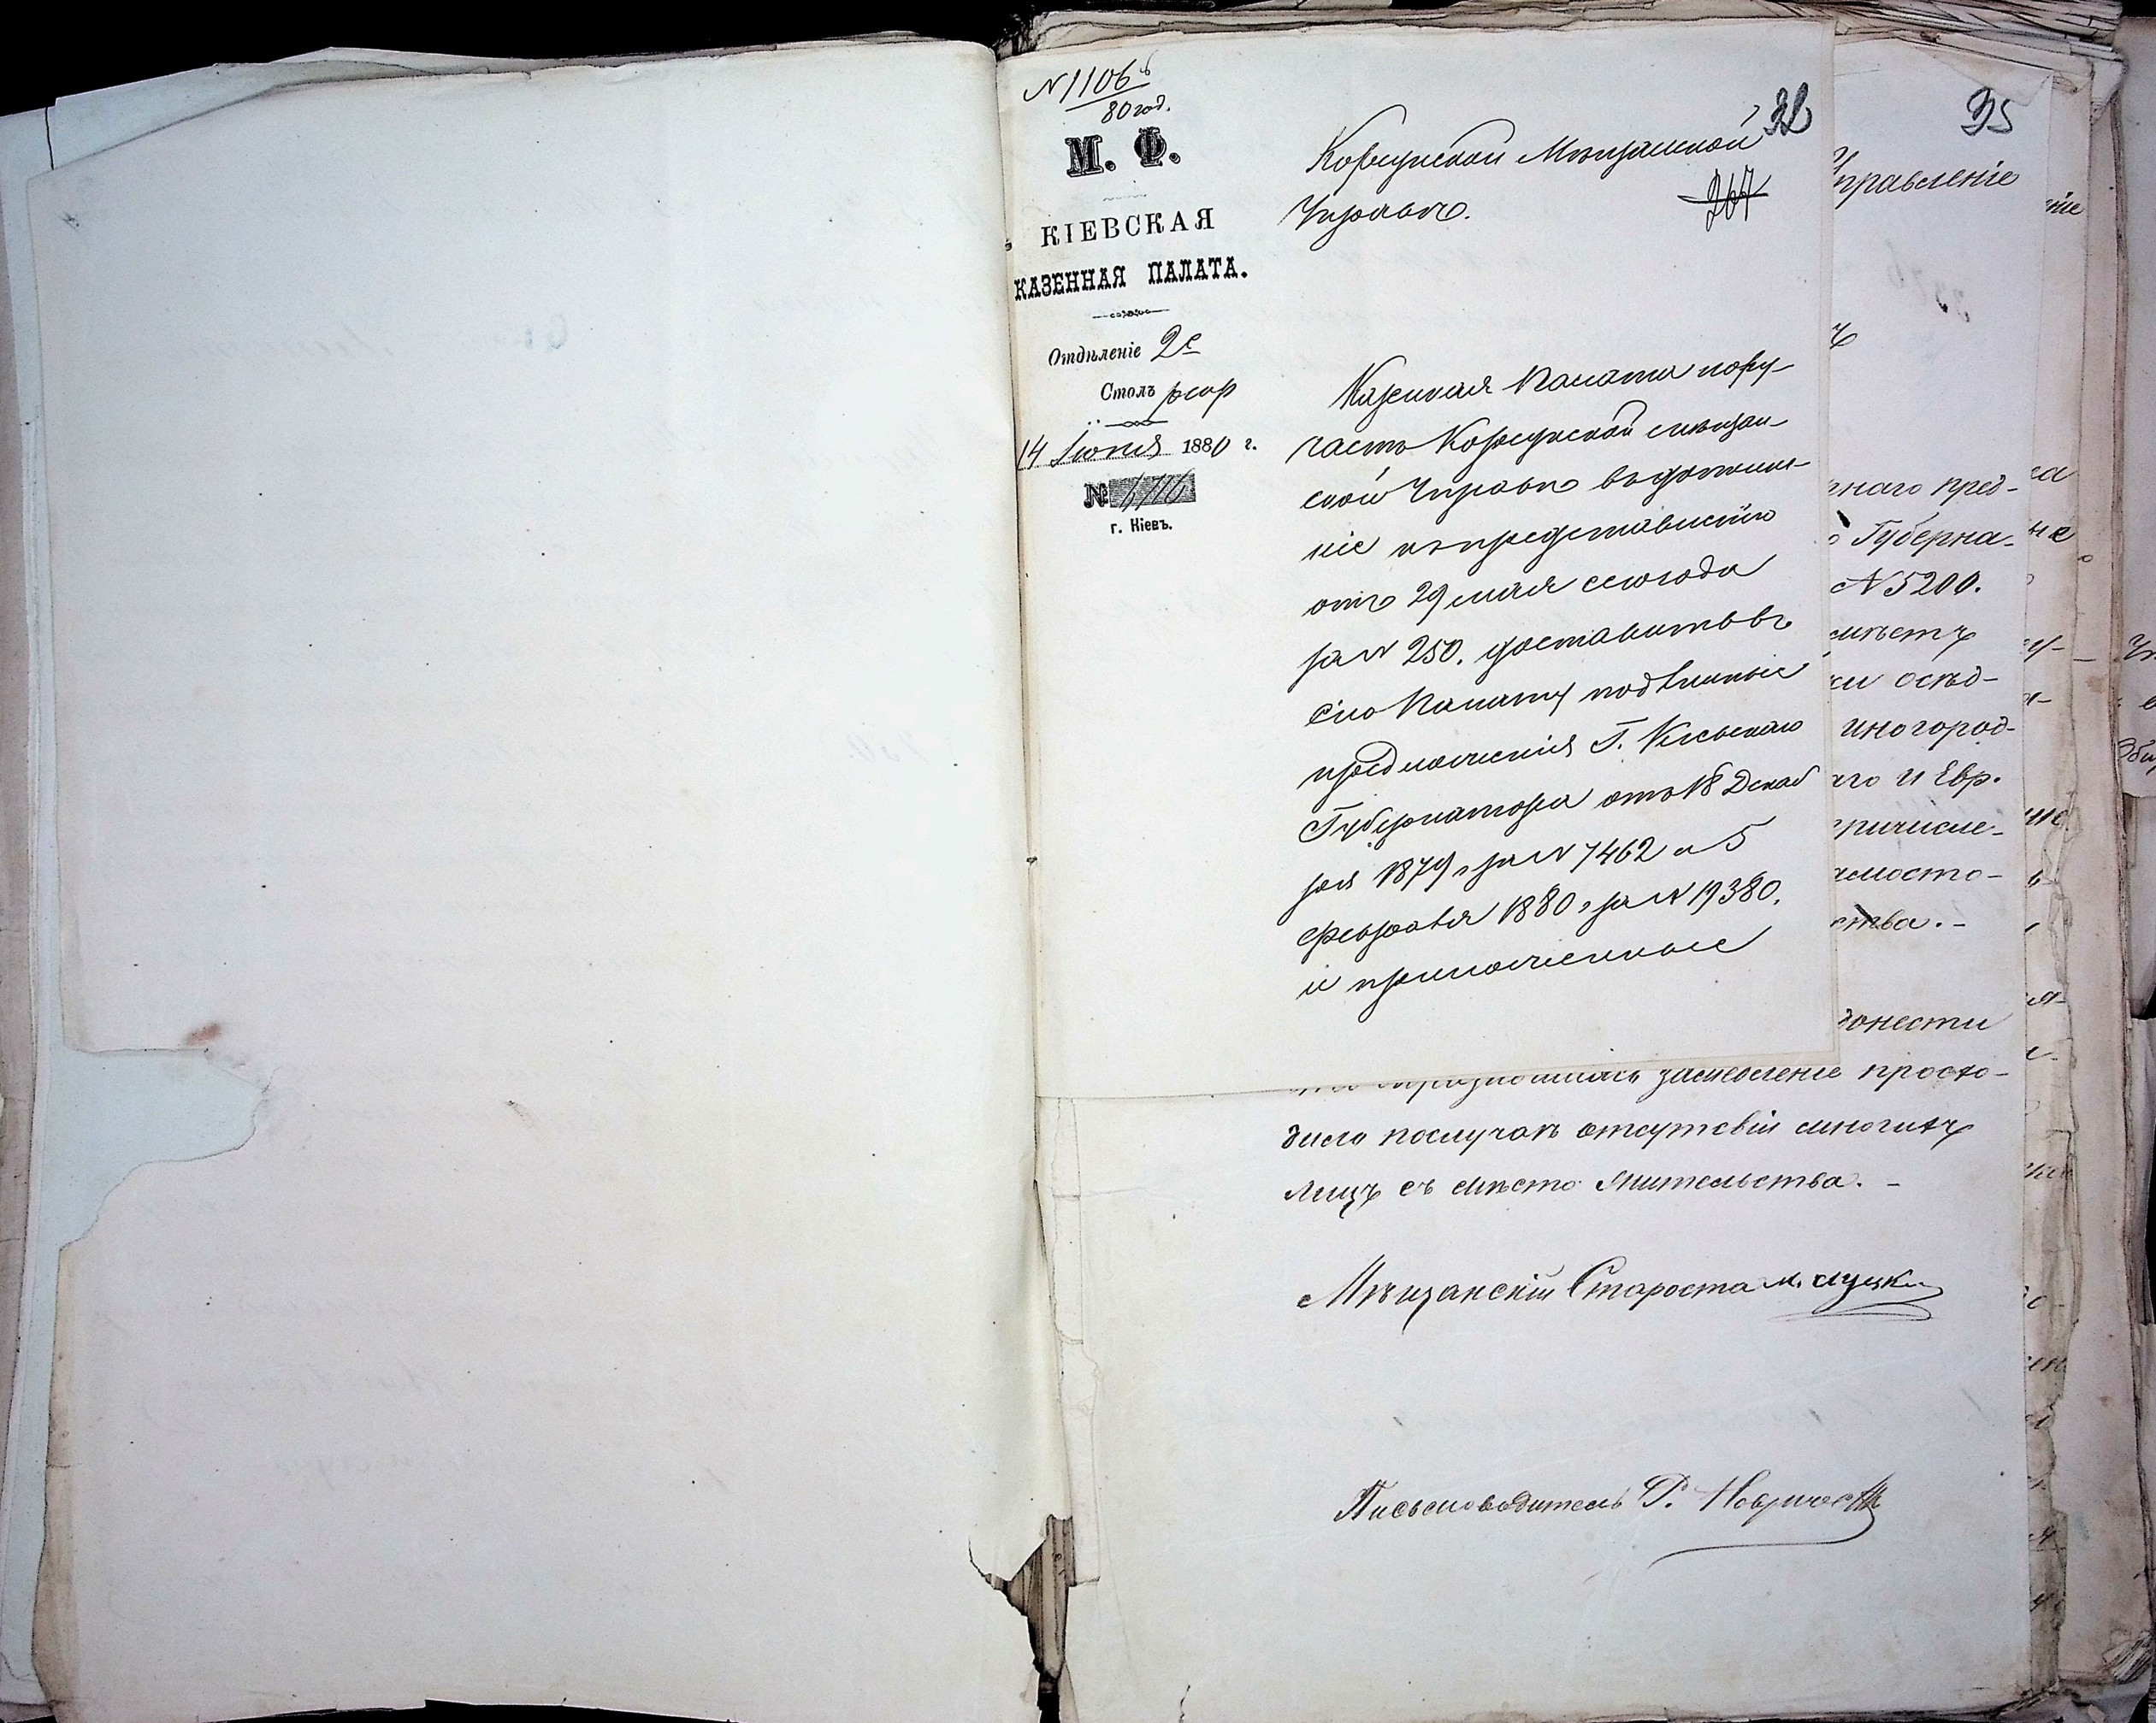 N 1106
80 год.
М. Ф.
КІЕВСКАЯ
КАЗЕННАЯ ПАЛАТА.
Отдѣленіе 2е
Столъ
14 Іюня 1880 г.
№
г. Кіевъ.
32
Корсунской Мѣщанской
Управѣ.
267
Казенная Палата пору-
чаетъ Корсунской мѣщан-
ской Управѣ въ дополне-
ніе къ представленію
отъ 29 мая сего года
за N 250. доставить въ
сію Палату подлинные
предложенія Г. Кіевскаго
Губернатора отъ 18 Декаб
ря 1879 г за N 7462 и 5
февраля 1880 г за N 19380.
и приложенные
35
Управленіе
рнаго пред-
Губерна-
N 5200.
осѣд-
иногород-
аго и Евр.
причисле-
ства. -
донести
замедленіе прозо-
дило послучаѣ отсутсвіи многихъ
лицъ съ мѣсто жительства. -
Мѣщанскій Староста М. Луцкій
Письмоводитель Р.